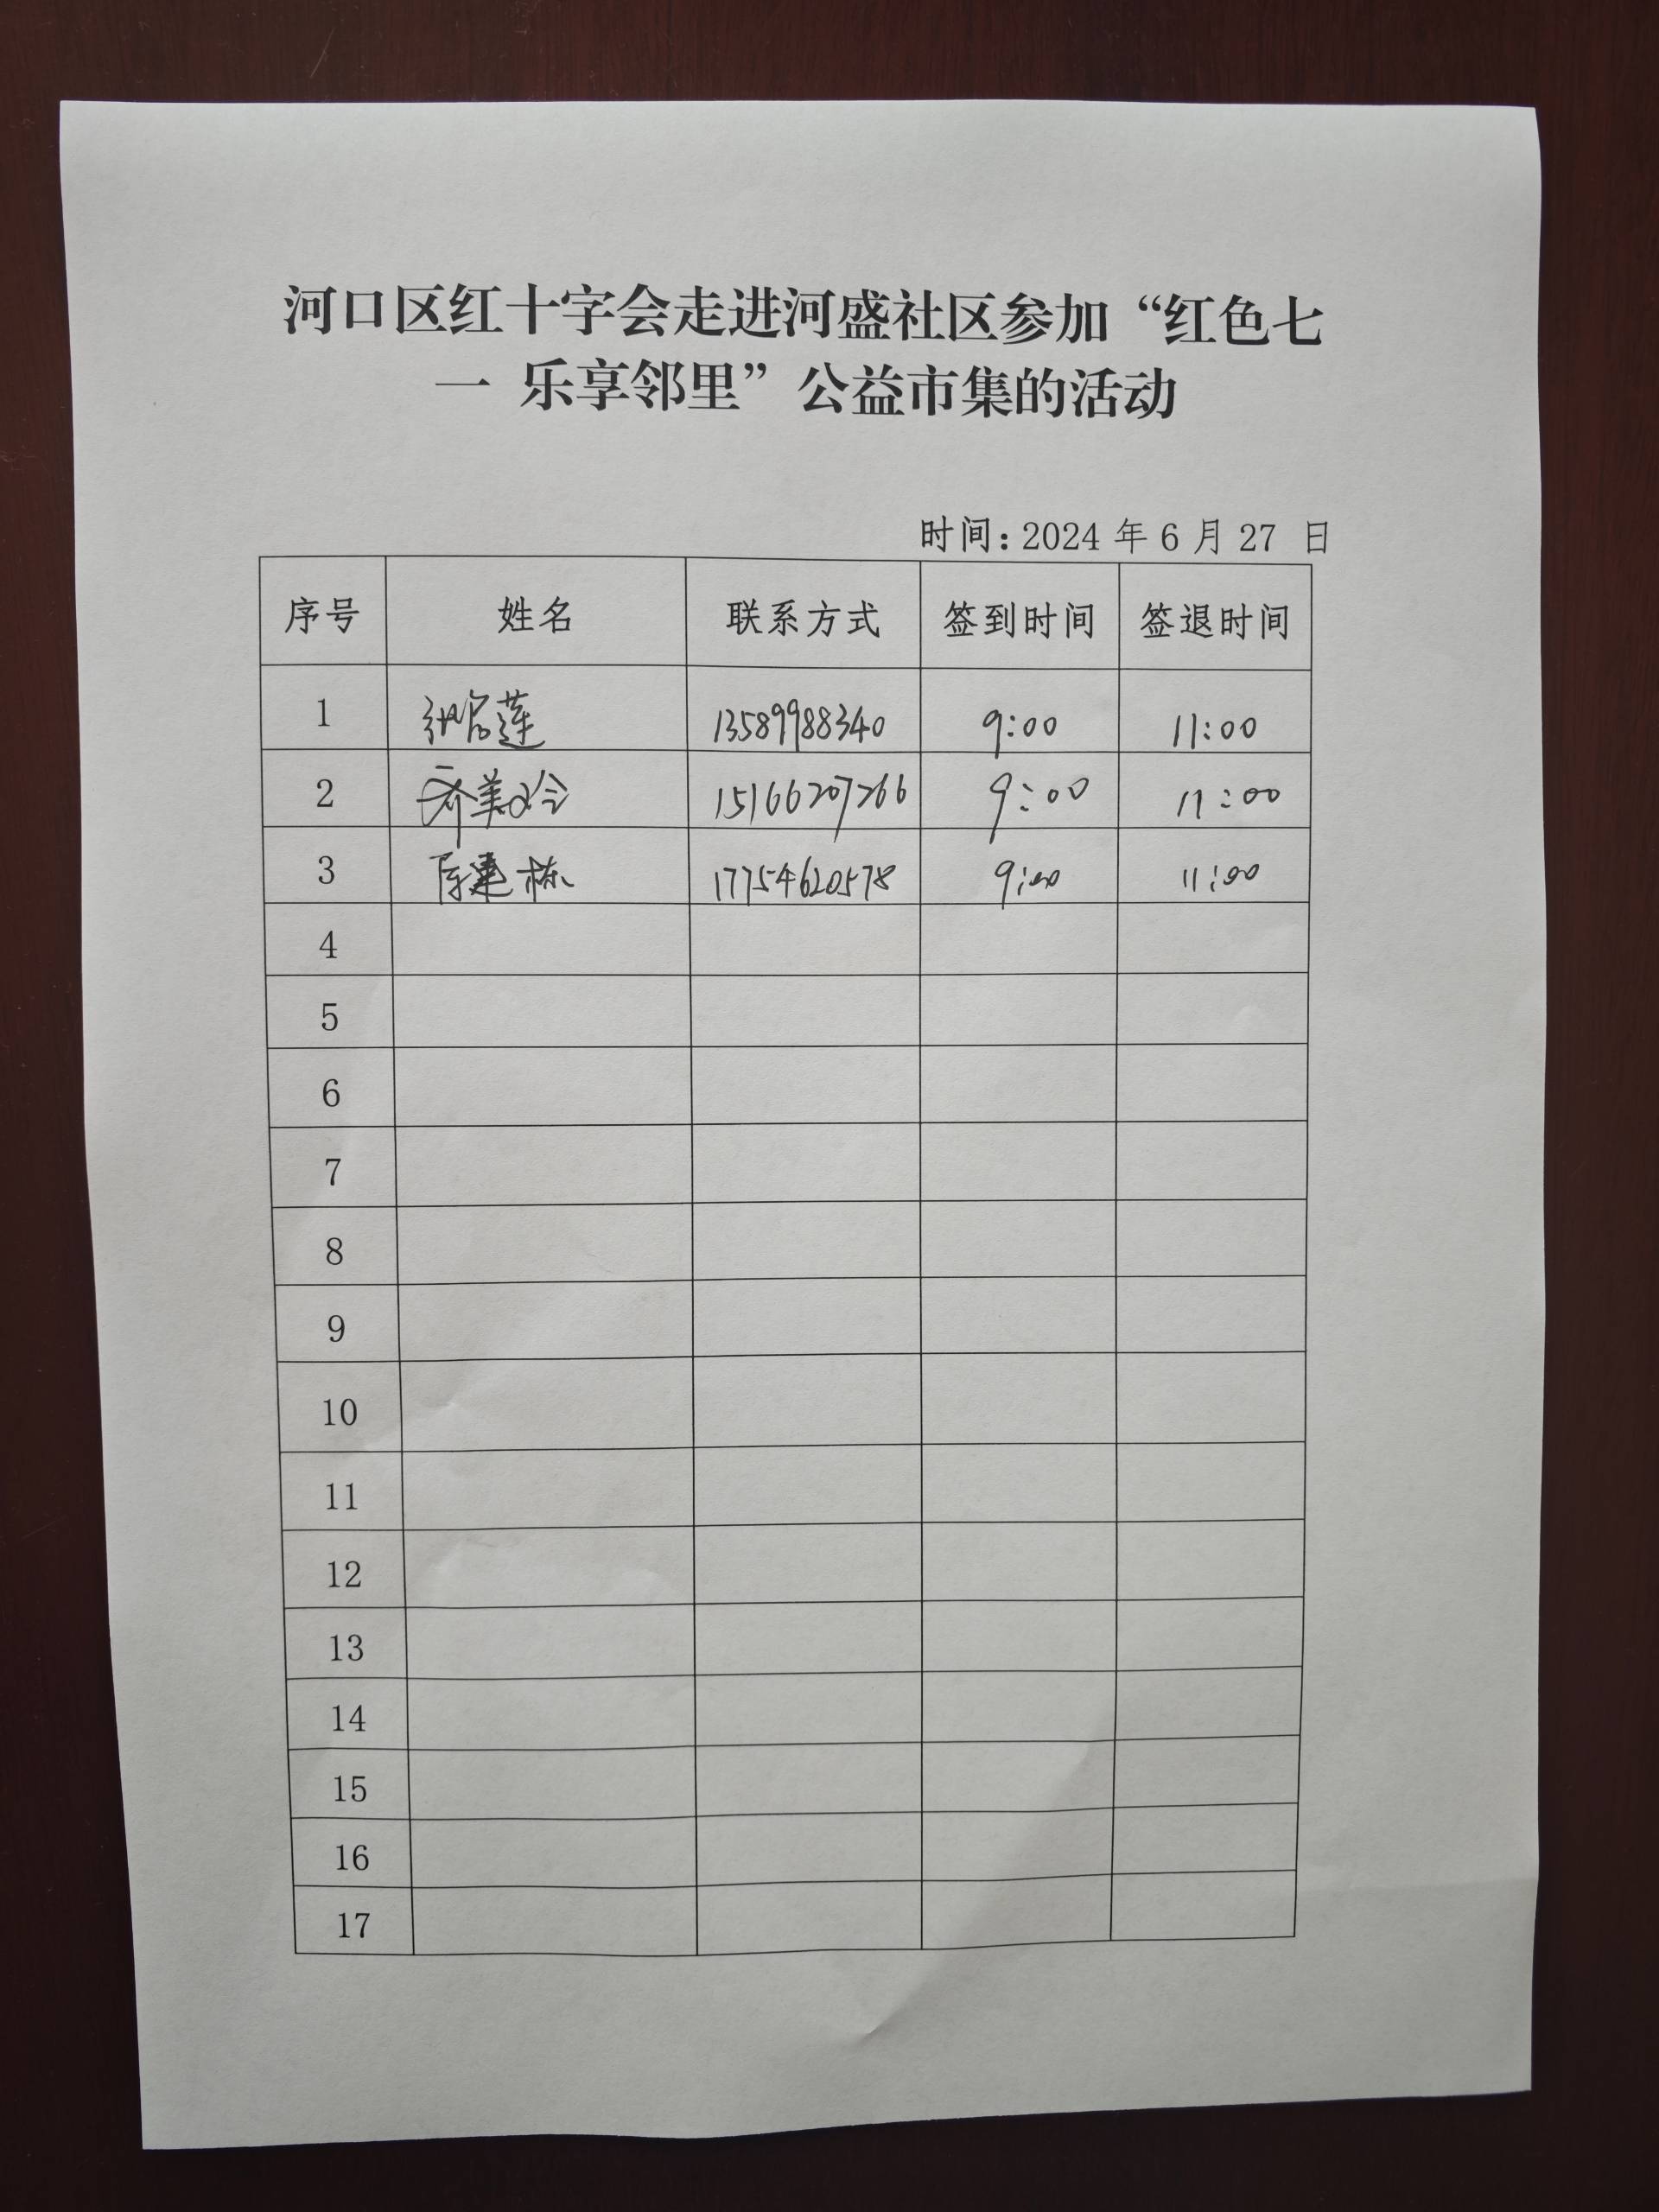 河口区红十字会走进河盛社区参加“红色七
一 乐享邻里”公益市集的活动
时间：2024 年 6 月 27 日
序号 姓名 联系方式 签到时间 签退时间
1 13589988340 9:00 11:00
2 齐美玲 15166207266 9:00 11:00
3 陈建栋 17754620578 9:00 11:00
4
5
6
7
8
9
10
11
12
13
14
15
16
17